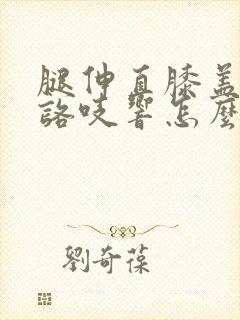 腿伸直膝蓋
咯吱響怎麼
劉奇葆